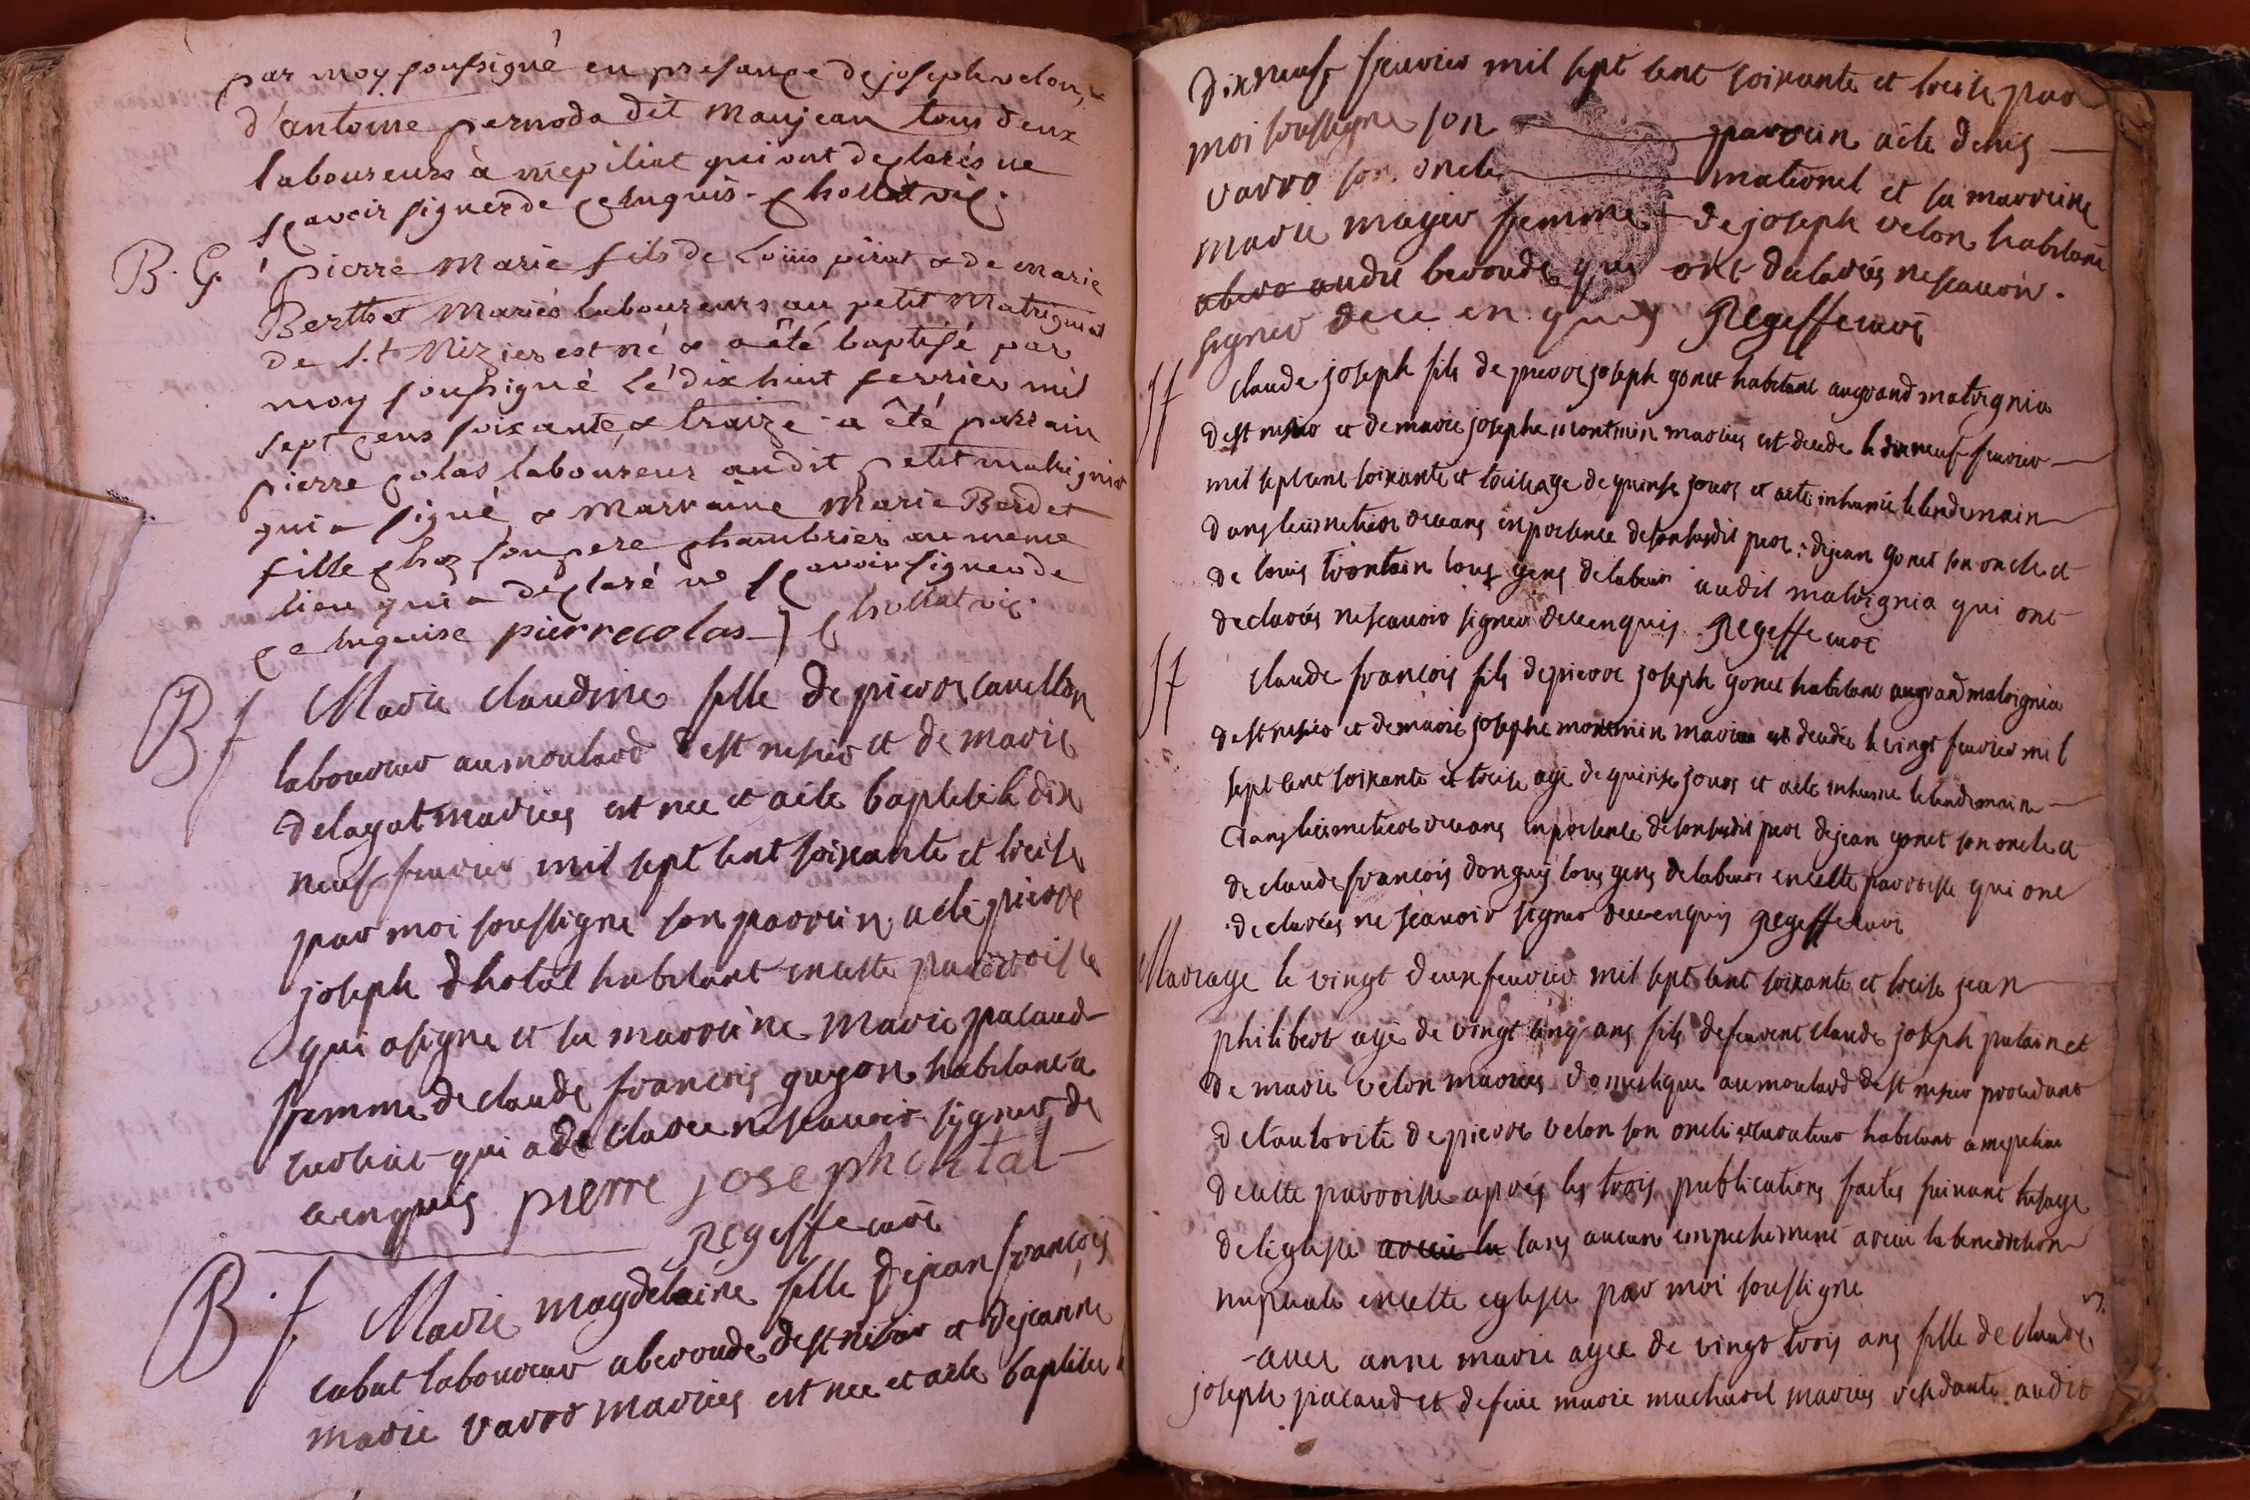 par moy soussigné en presance de joseph velon, &
d'antoine pernoda dit Manjean tous deux
laboureurs à mepiliat qui ont declarés ne
scavoir signer de ce enquis. chollat vic.
B. G. pierre Marie fils de Loüis pirat & de marie
Berthet Mariés laboureurs au petit Matrignat
de s.t Nizier est né & a été baptisé par
moy soussigné Le dix huit fevrier mil
sept cens soixante & traize a été parrain
pierre colas laboureur audit petit matrignat
qui a signé & marraine Marie Bardet
fille chez son pere chambrier au meme
lieu qui a declaré ne scavoir signer de
ce enquise pierre colas chollat vic.
B. f Marie claudine fille de pierre cavellon
laboureur au moulard de st nisier et de marie
delayat mariés est nee et a ete baptisé le dix
neuf fevrier mil sept cent soixante et treise
par moi soussigne son parrein a été pierre
joseph dhotal habitant en cette parroisse
qui a signe et sa marreine marie pacaud
femme de claude francois guyon habitant a
curtiat qui a declaree ne scauoir signer de
ce enquis pierre joseph hotal
Regeffe curé
B. f Marie magdelaine fille de jean francois
cabut laboureur a beroude de st nisier et de jeanne
marie varro mariés est nee et a ete baptisee le
dix neuf feurier mil sept cent soixante et treise par
moi soussigne son parrein a ete denis
varro son oncle maternel et sa marreine
marie mayer femme de joseph velon habitant
abero audit beroude qui ont declarés ne scauoir
signer de ce en quis Regeffe curé
Sf claude joseph fils de pierre joseph gonet habitant au grand matrignia
de st nisier et de marie josephe montmin mariés est decedé le dix neuf feurier
mil sept cent soixante et treise age de quinse jours et a ete inhumé le lendemain
dans le cimetiere ceans en presence de son susdit pere, de jean gonet son oncle et
de louis trontain tous gens de labeur audit matrignia qui ont
declarés ne scauoir signer de ce enquis Regeffe curé
Sf claude francois fils de pierre joseph gonet habitant au grand matrignia
de st nisier et de marie josephe montmin mariés est decedé le vingt feurier mil
sept cent soixante et treise age de quinse jours et a ete inhumé le lendemain
dans le cimetiere ceans en presence de son susdit pere de jean gonet son oncle et
de claude francois donguy tous gens de labeur en cette parroisse qui ont
declarés ne scauoir signer de ce enquis Regeffe curé
Mariage le vingt deux feurier mil sept cent soixante et treise jean
philibert agé de vingt cinq ans fils de feu claude joseph putain et
de marie velon mariés domestique au moulard de st nisier procedant
de l'autorité de pierre velon son oncle et curateur habitant a mepeliat
de cette parroisse apres les trois publications faites suivant l'usage
de l'eglise sans aucun empechement a recu la benediction
nuptiale en cette eglise par moi soussigne
avec anne marie agee de vingt trois ans fille de claude
joseph pacaud et de feue marie machurel mariés residante audit